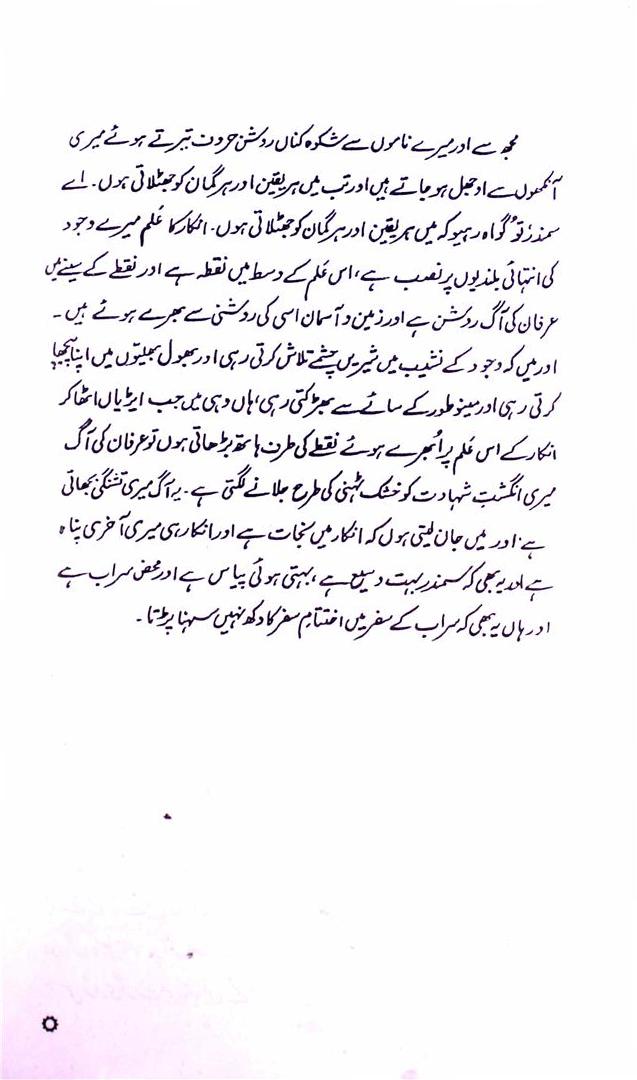 مجھ سے اور میرے ناموں سے شکوہ کناں روشن حروف تیرتے ہوئے میری
آنکھوں سے اوجھل ہو جاتے ہیں اور تب میں ہر یقین اور ہر گمان کو جھٹلاتی ہوں۔ اے
سمندر تُو گواہ رہیو کہ میں ہر یقین اور ہر گمان کو جھٹلاتی ہوں۔ انکار کا عَلم میرے وجود
کی انتہائی بلندیوں پر نصب ہے، اس عَلم کے وسط میں نقطہ ہے اور نقطے کے سینے میں
عرفان کی آگ روشن ہے اور زمین و آسمان اسی کی روشنی سے بھرے ہوئے ہیں۔
اور میں کہ وجود کے نشیب میں شیریں چشمے تلاش کرتی رہی اور بھول بھلیوں میں اپنا پیچھا
کرتی رہی اور مینو طور کے سائے سے بھڑکتی رہی، ہاں وہی میں جب ایڑیاں اٹھا کر
انکار کے اس عَلم پر اُبھرے ہوئے نقطے کی طرف ہاتھ بڑھاتی ہوں تو عرفان کی آگ
میری انگشتِ شہادت کو خشک ٹہنی کی طرح جلانے لگتی ہے۔ یہ آگ میری تشنگی بجھاتی
ہے اور میں جان لیتی ہوں کہ انکار میں نجات ہے اور انکار ہی میری آخری پناہ
ہے اور یہ بھی کہ سمندر بہت وسیع ہے، بہتی ہوئی پیاس ہے اور محض سراب ہے
اور ہاں یہ بھی کہ سراب کے سفر میں اختتامِ سفر کا دکھ نہیں سہنا پڑتا۔